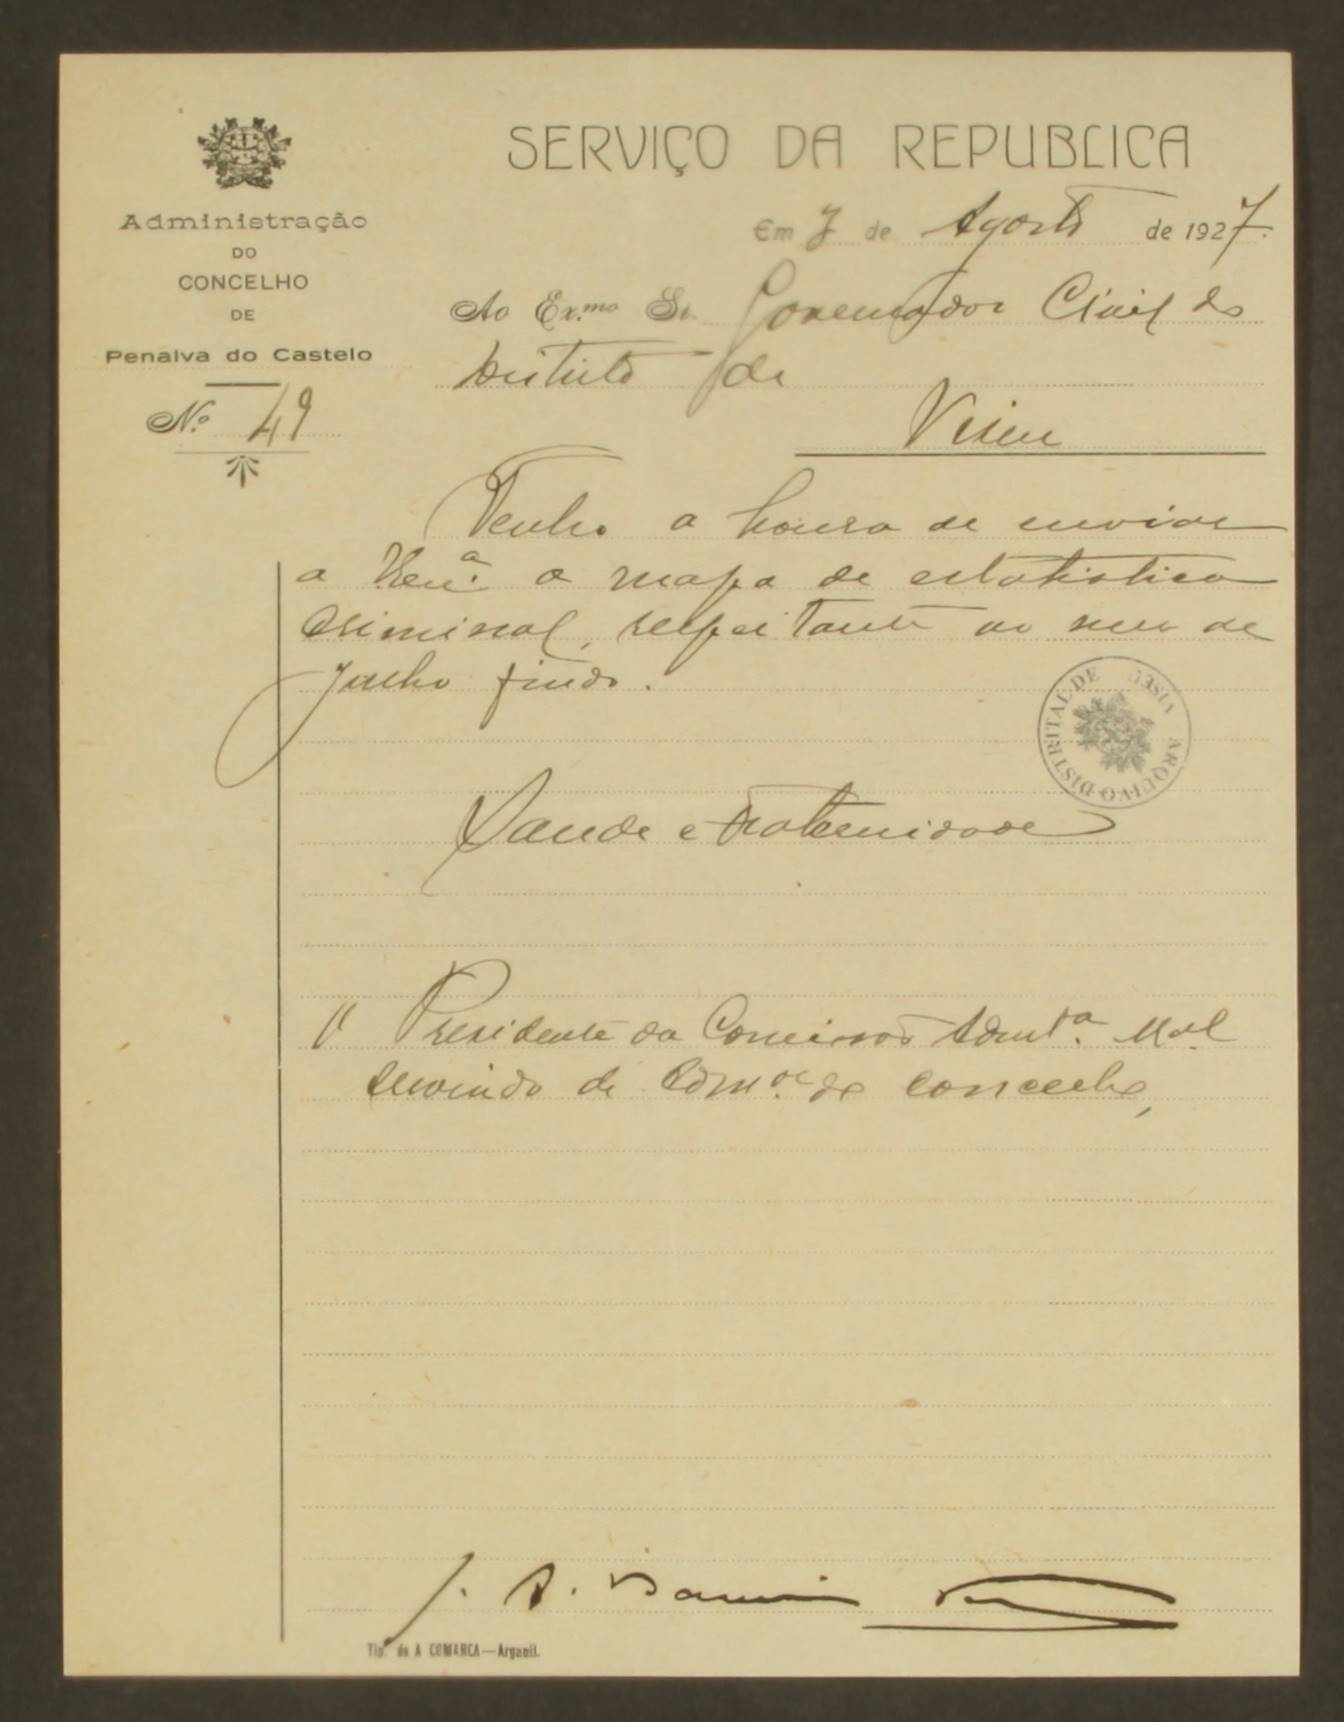 SERVIÇO DA REPUBLICA
Administração
DO
CONCELHO
DE
Penalva do Castelo
N.º 49
Em 7 de Agosto de 1927.
Ao Ex.mo Sr. Governador Civil do
Distrito de
Viseu
Tenho a honra de enviar
a V.Exc.ª o mapa de estatistica
criminal, respeitante ao mes de
Julho findo.
ARQUIVO DISTRITAL DE VISEU
Saude e Fraternidade
O Presidente da Comissão Admt.ª M.al
servindo de Adm.or do concelho,
J. A.
Tip. de A COMARCA—Arganil.